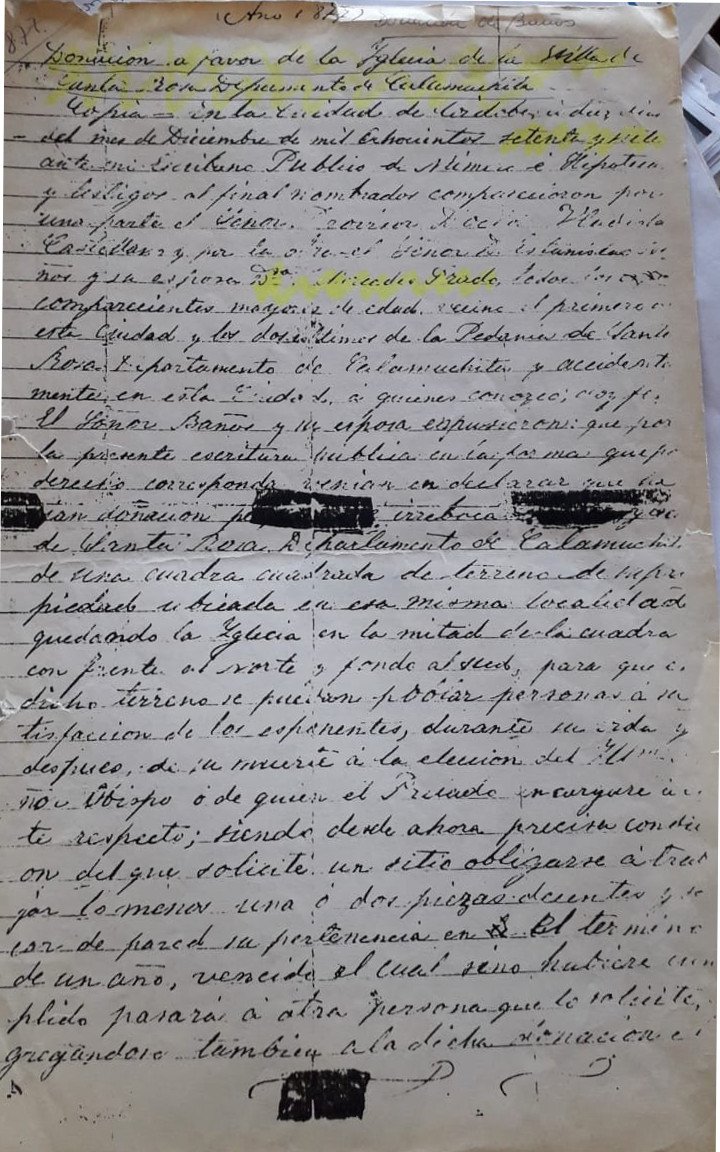 877.
(Año 1877) Donación de Baños
Donacion a favor de la Yglecia de la Villa de
Santa Rosa Departamento de Calamuchita
Copia = En la Ciudad de Córdoba, á diez dias
del mes de Diciembre de mil ochocientos setenta y siete
ante mi Escribano Publico de Minas é Hipotecas
y testigos al final nombrados comparecieron por
una parte el Señor Provisor Doctor
Castellano y por la otra el Señor D. Estanislao
ños y su esposa Dna. Mercedes Prado, todos los
comparecientes mayores de edad, vecino el primero
esta Ciudad y los dos últimos de la Pedania de Santa
Rosa Departamento de Calamuchita y accidental
mente en esta Ciudad, á quienes conozco, doy fe.
El Señor Baños y su esposa expusieron: que por
la presente escritura publica en la forma que por
derecho corresponda venian en declarar que ha
cian donacion irreboca
de Santa Rosa Departamento de Calamuchita
de una cuadra cuadrada de terreno de su pro
piedad ubicada en esa misma localidad
quedando la Yglecia en la mitad de la cuadra
con frente al Norte y fondo al sud, para que en
dicho terreno se puedan poblar personas á sa
tisfaccion de los esponentes, durante su vida y
despues, de su muerte á la eleccion del
ñor Obispo ó de quien el Prelado encargare á es
te respecto; siendo desde ahora precisa condici
on del que solicite un sitio obligarse á trab
jar lo menos una ó dos piezas decentes y
car de pared su pertenencia en El termino
de un año, vencido el cual sino hubiere cum
plido pasará á otra persona que lo solicite,
gregandose tambien a la dicha donacion